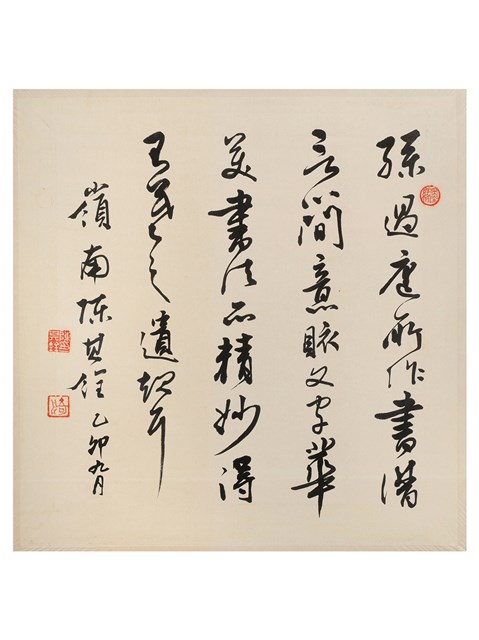 孫過庭所作書譜
言簡意賅文字華
美書法亦精妙得
之遺韵耳
嶺南陳其銓乙卯九月